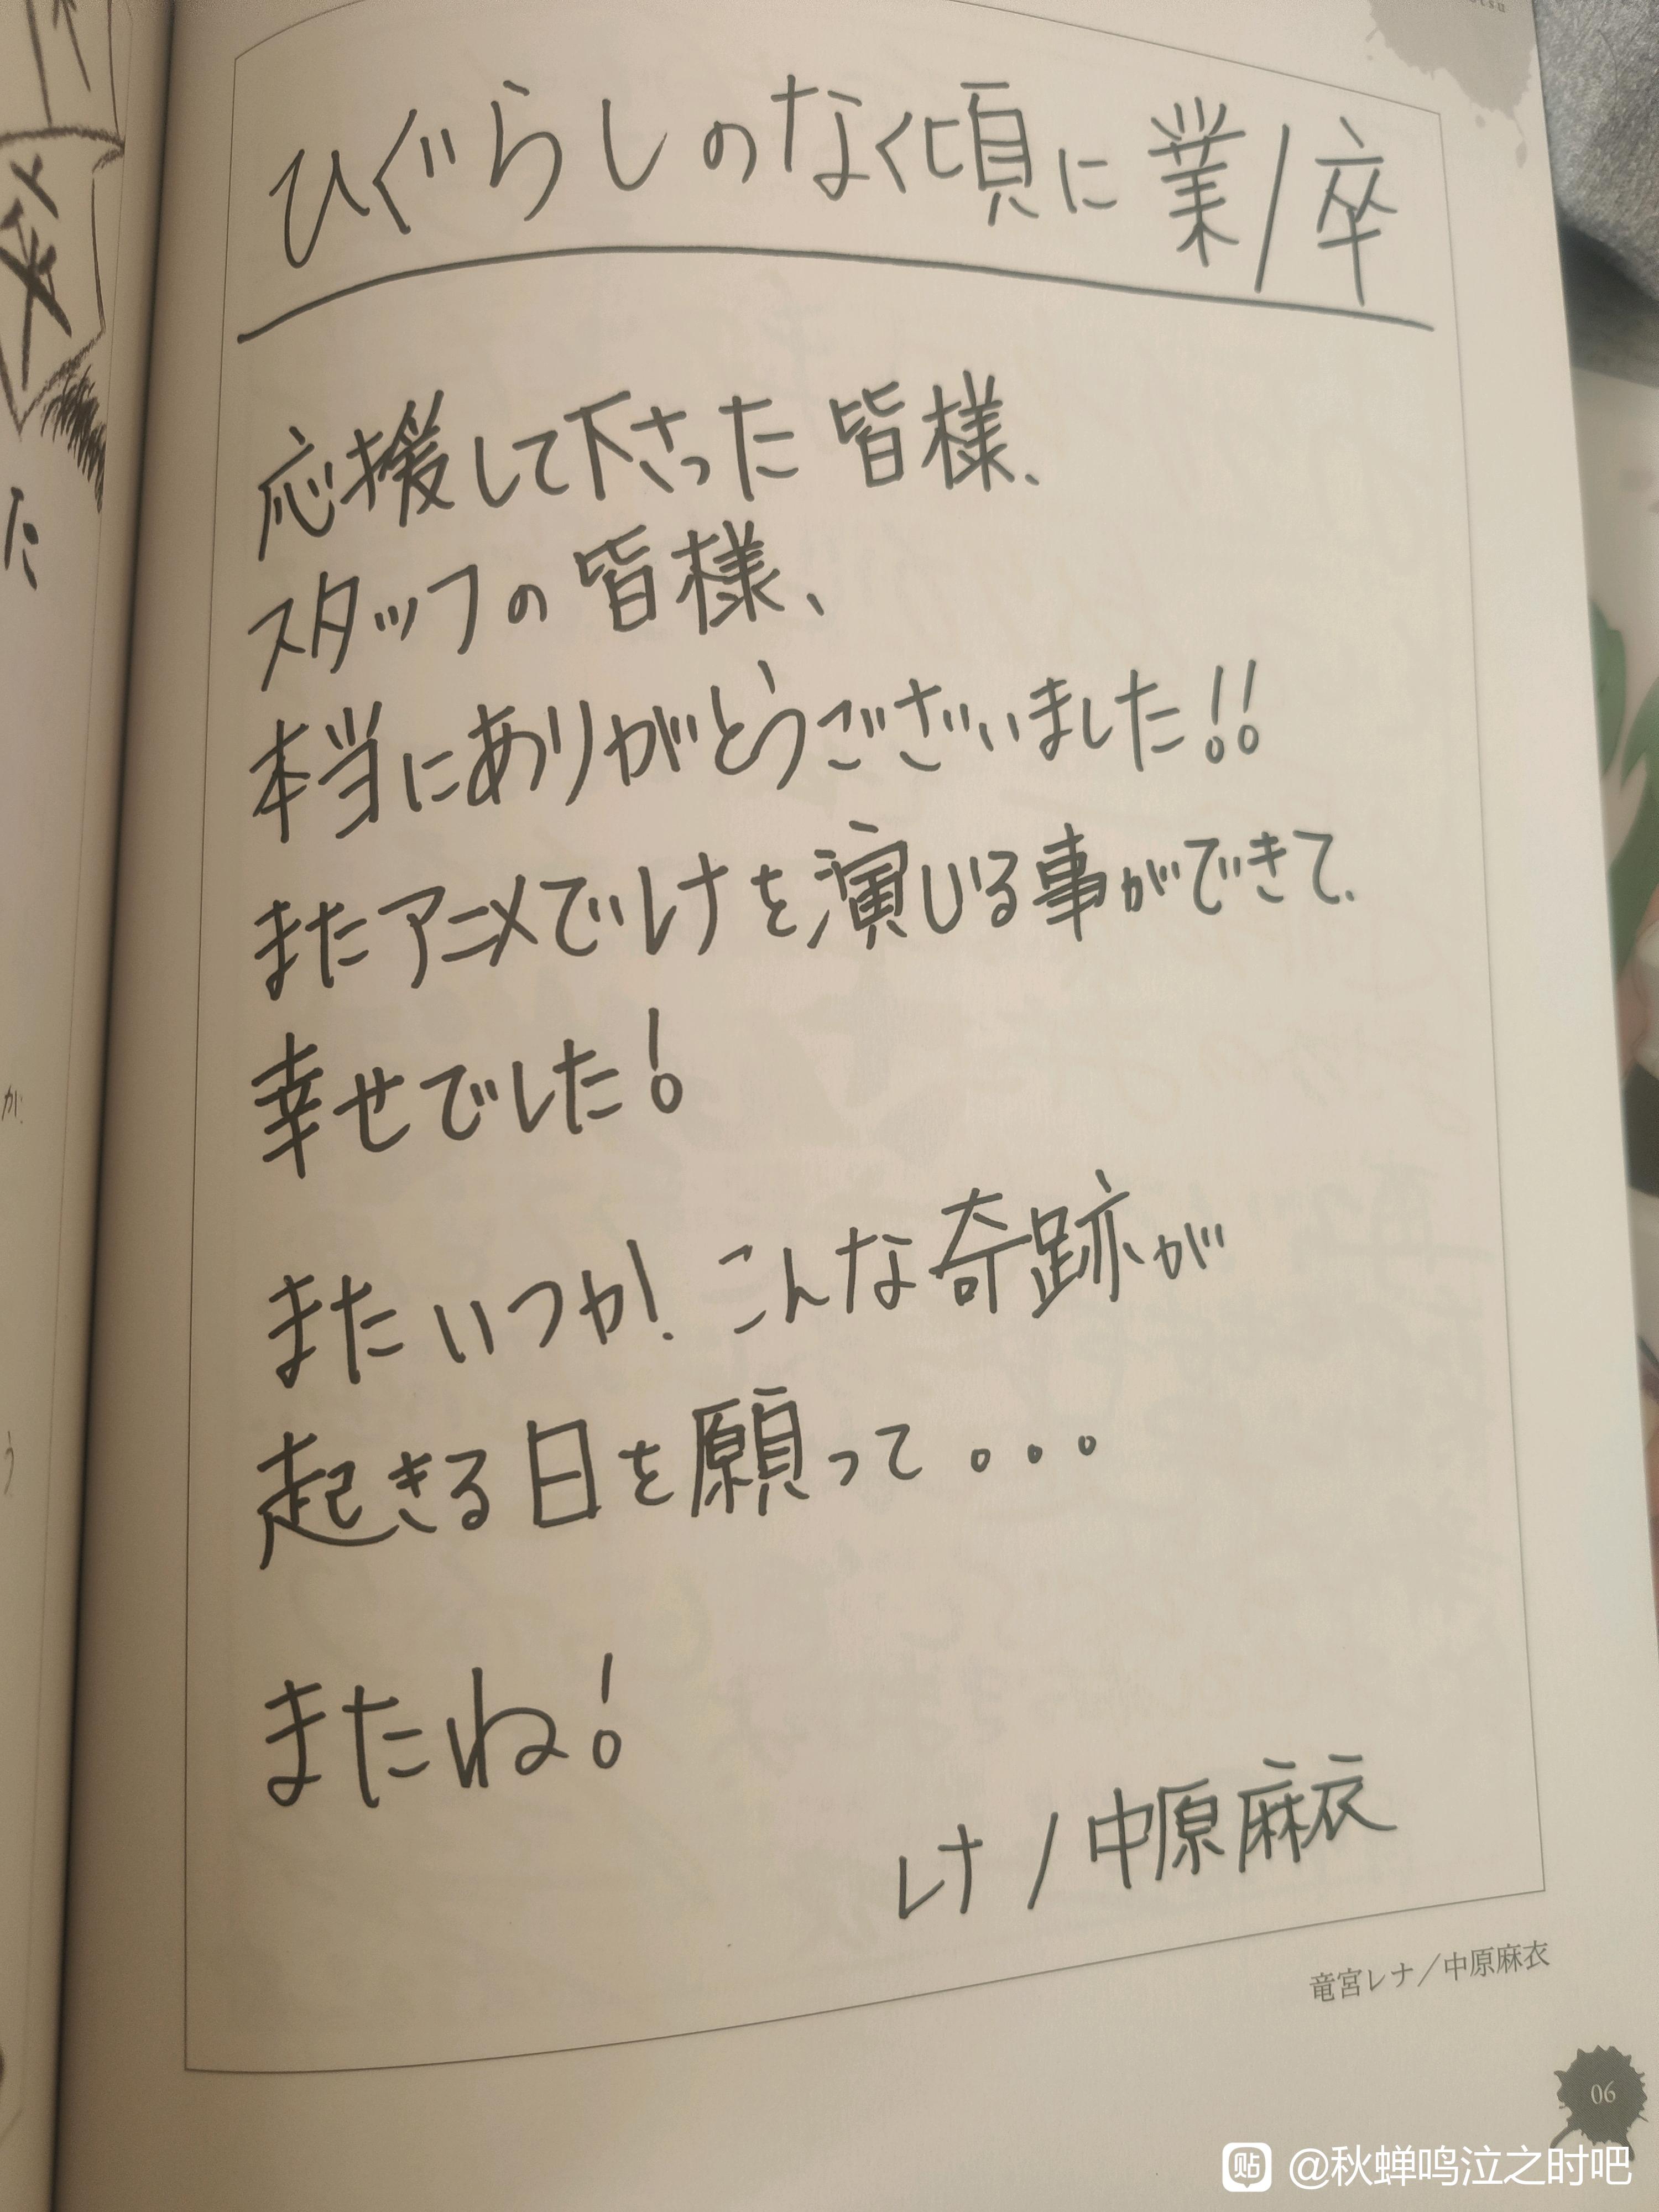 ひぐらしのなく頃に業/卒
応援して下さった皆様、
スタッフの皆様、
本当にありがとうございました!!
またアニメでレナを演じる事ができて、
幸せでした!
またいつか! こんな奇跡が
起きる日を願って...
またね!
レナ/中原麻衣
竜宮レナ/中原麻衣
06
貼 @秋蝉鸣泣之时吧